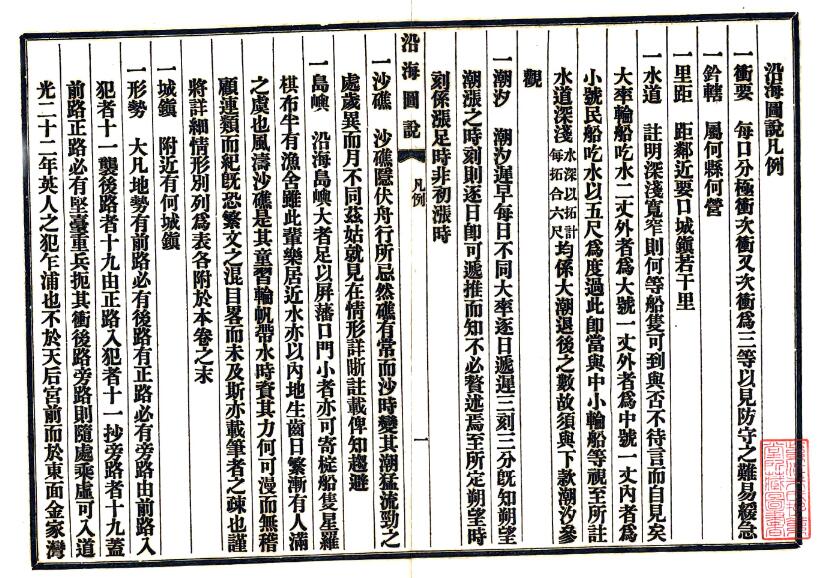 沿海圖說凡例
一衝要　每口分極衝次衝又次衝爲三等以見防守之難易緩急
一鈐轄　屬何縣何營
一里距　距鄰近要口城鎮若干里
一水道　註明深淺寬窄則何等船隻可到與否不待言而自見矣
大率輪船吃水二丈外者爲大號一丈外者爲中號一丈內者爲
小號民船吃水以五尺爲度過此卽當與中小輪船等視至所註
水道深淺水深以拓計每拓合六尺均係大潮退後之數故須與下款潮汐參
觀
一潮汐　潮汐遲早每日不同大率逐日遞遲三刻三分旣知朔望
潮漲之時刻則逐日卽可遞推而知不必贅述焉至所定朔望時
刻係漲足時非初漲時
沿海圖說　凡例　一
一沙礁　沙礁隱伏舟行所忌然礁有常而沙時變其潮猛流勁之
處歲異而月不同茲姑就見在情形詳晰註載俾知趨避
一島嶼　沿海島嶼大者足以屏藩口門小者亦可寄椗船隻星羅
棋布半有漁舍雖此輩樂居近水亦以內地生齒日繁漸有人滿
之虞也風濤沙礁是其童習輪帆帶水時資其力何可漫而無稽
顧連類而紀旣恐繁文之混目畧而未及斯亦載筆者之疎也謹
將詳細情形別列爲表各附於本卷之末
一城鎮　附近有何城鎮
一形勢　大凡地勢有前路必有後路有正路必有旁路由前路入
犯者十一襲後路者十九由正路入犯者十一抄旁路者十九蓋
前路正路必有堅臺重兵扼其衝後路旁路則隨處乘虛可入道
光二十二年英人之犯乍浦也不於天后宮前而於東面金家灣